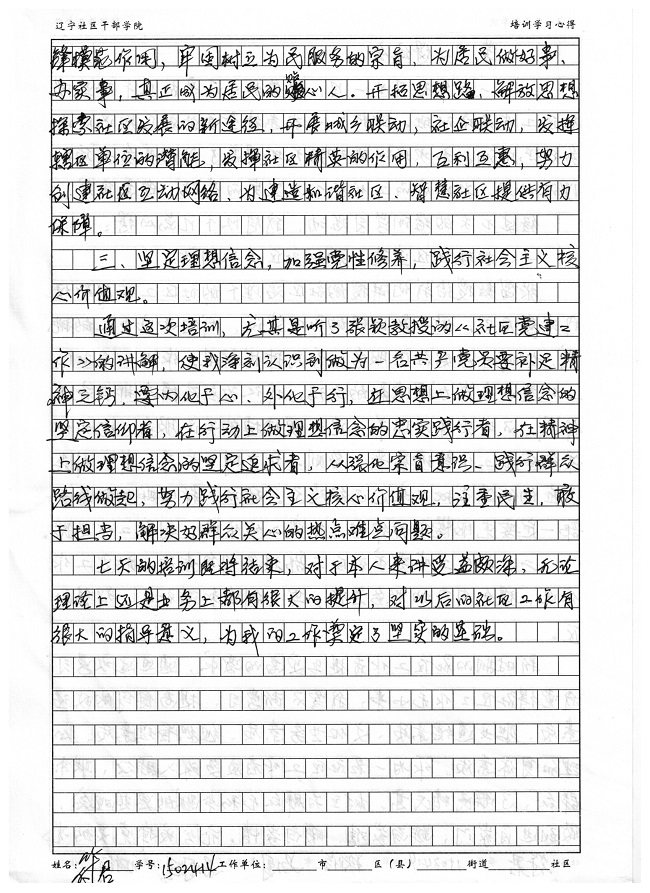 辽宁社区干部学院 培训学习心得
锋模范作用，牢固树立为民服务的宗旨，为居民做好事、
办实事，真正成为居民的贴心人。开拓思想路，解放思想
探索社区发展的新途径，开展城乡联动，社企联动，发挥
辖区单位的潜能，发挥社区精英的作用，互利互惠，努力
创建社区互动网络、为建造和谐社区、智慧社区提供有力
保障。
三、坚定理想信念，加强党性修养，践行社会主义核
心价值观。
通过这次培训，尤其是听了张颖教授的《社区党建工
作》的讲解，使我深刻认识到做为一名共产党员要补足精
神之钙，要内化于心、外化于行，在思想上做理想信念的
坚定信仰者，在行动上做理想信念的忠实践行者，在精神
上做理想信念的坚定追求者，从强化宗旨意识、践行群众
路线做起，努力践行社会主义核心价值观，注重民生，敢
于担当，解决好群众关心的热点难点问题。
七天的培训即将结束，对于本人来讲受益颇深，无论
理论上还是业务上都有很大的提升，对以后的社区工作有
很大的指导意义，为我的工作奠定了坚实的基础。
姓名: 学号:1502414 工作单位: 市 区（县） 街道 社区